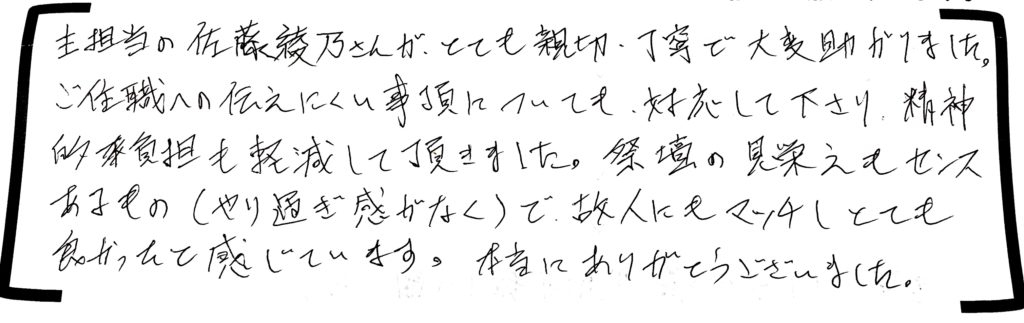 主担当の佐藤綾乃さんが、とても親切、丁寧で大変助かりました。
ご住職への伝えにくい事項についても、対応して下さり、精神
的な負担も軽減して頂きました。祭壇の見栄えもセンス
あるもの（やり過ぎ感がなく）で、故人にもマッチしとても
良かったと感じています。本当にありがとうございました。